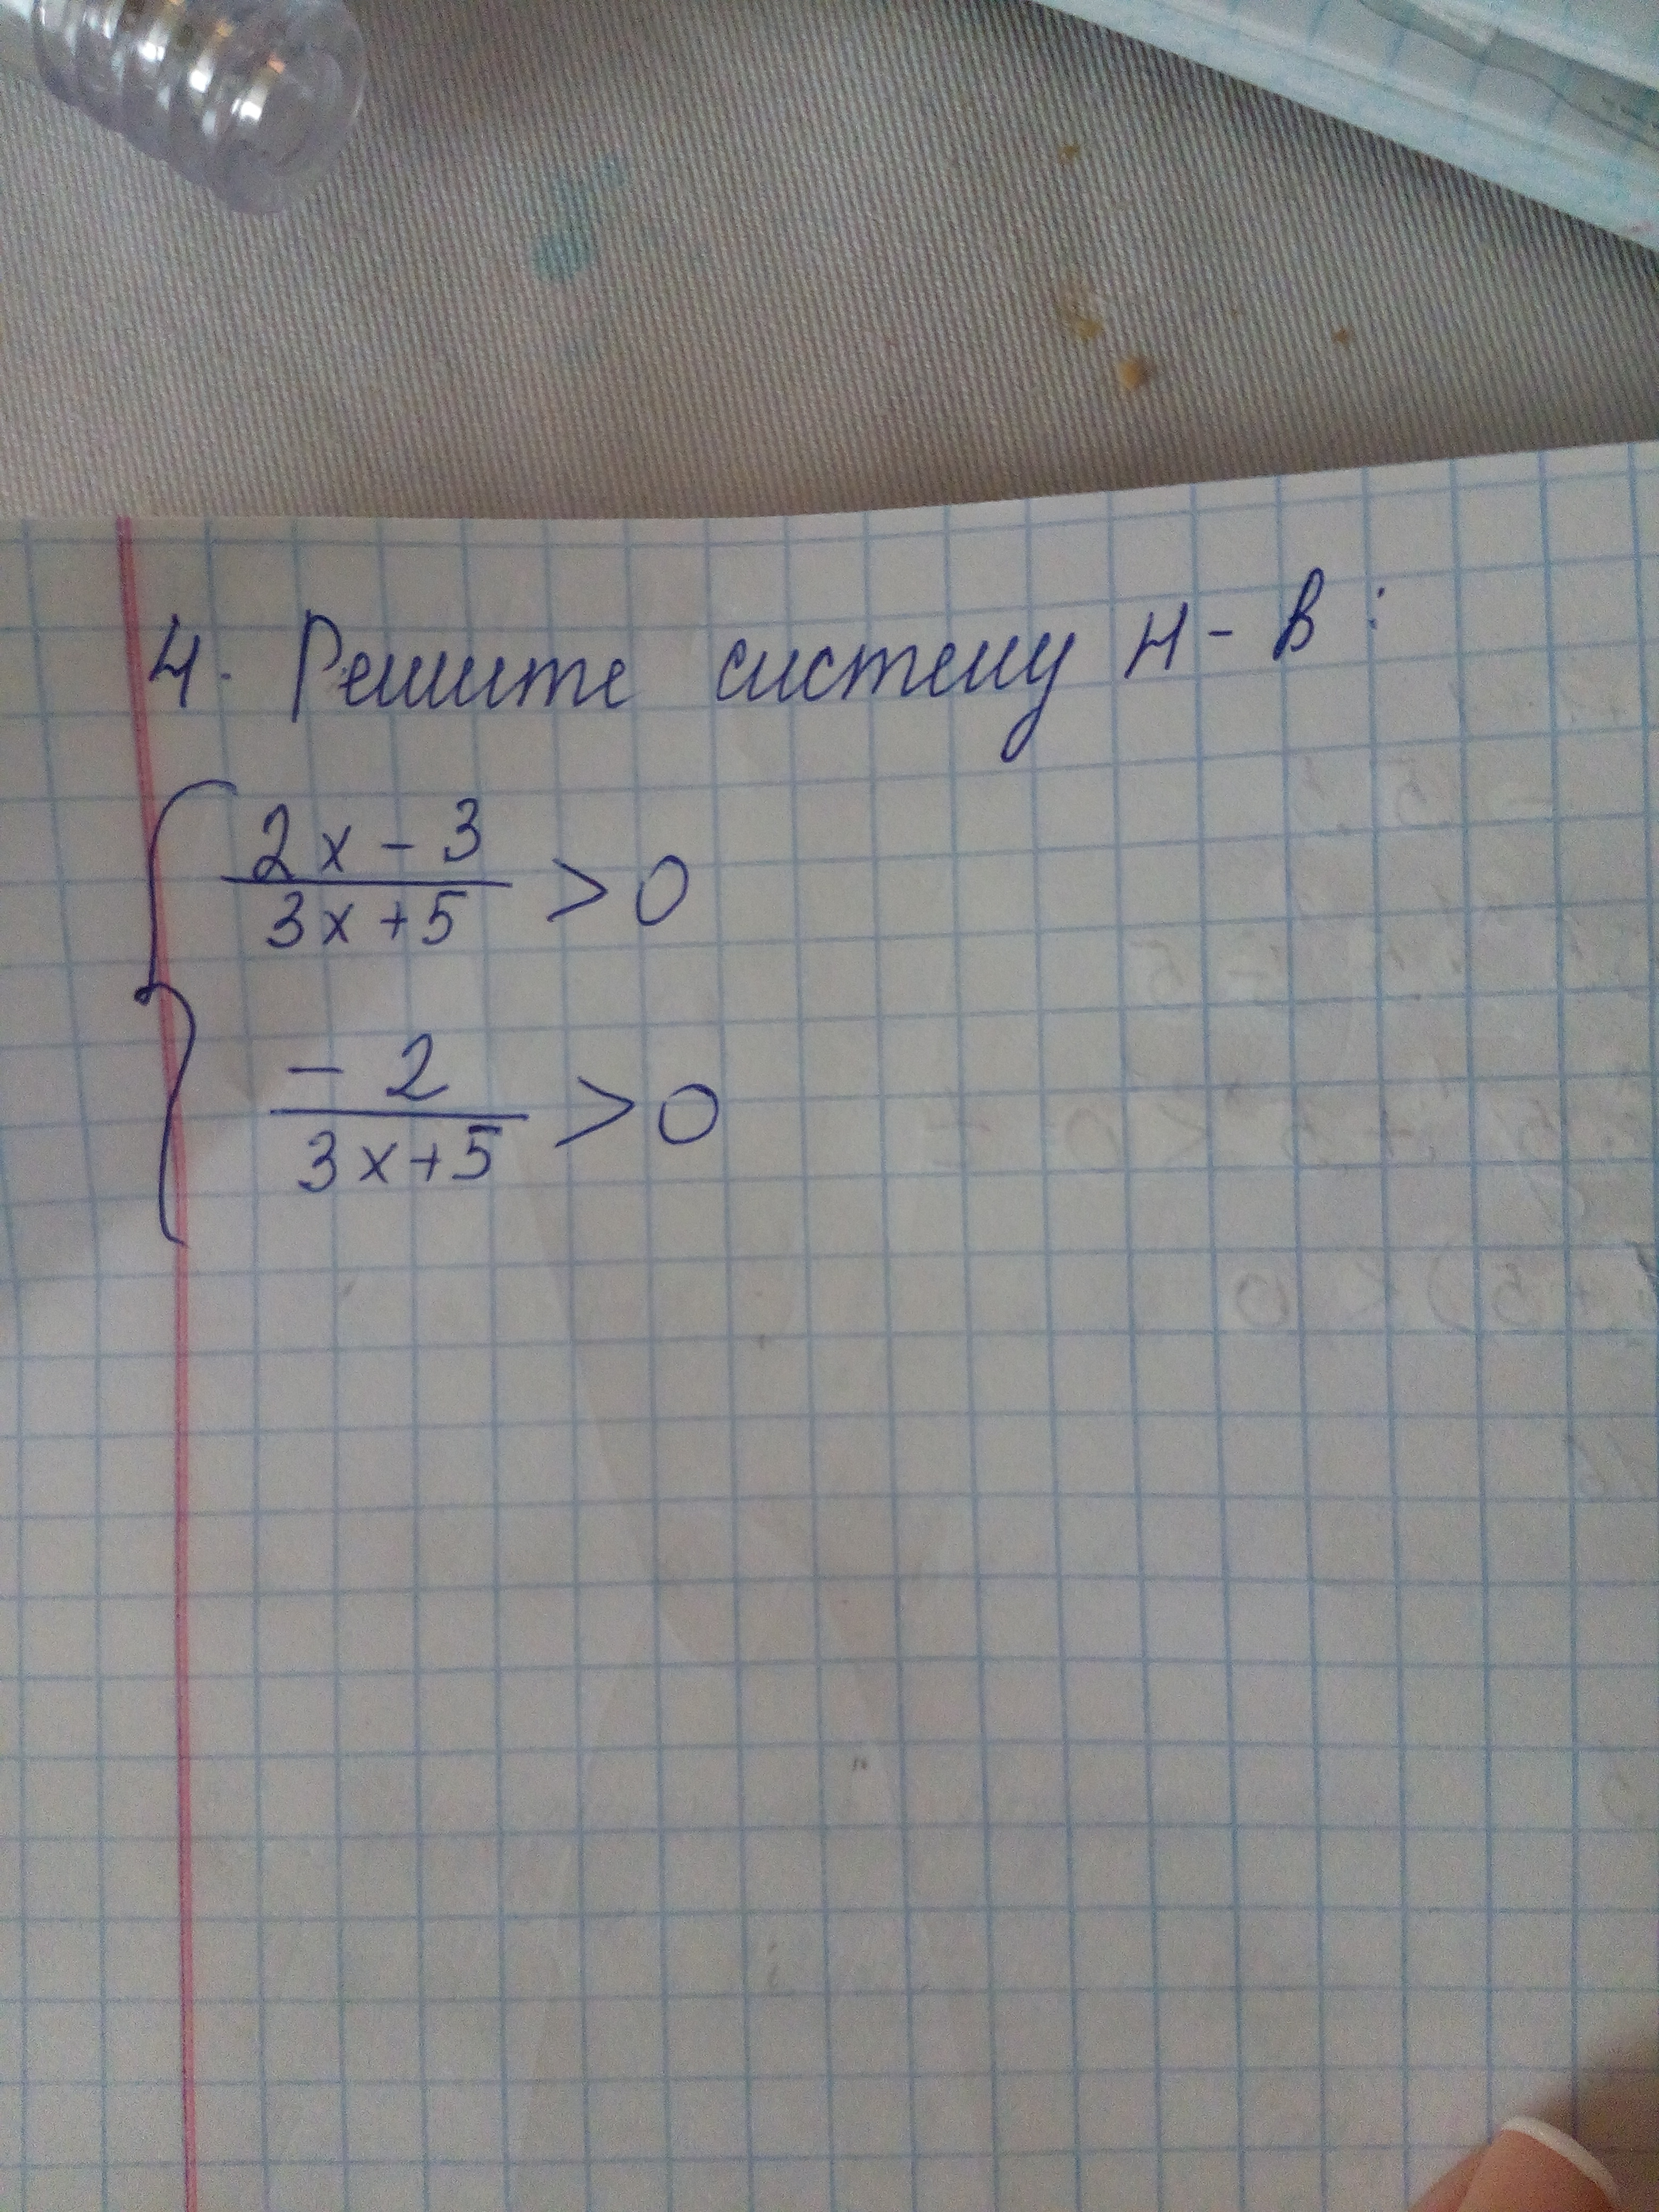 4. Решите систему н-в:
2x - 3
3x + 5 > 0
- 2
3x + 5 > 0